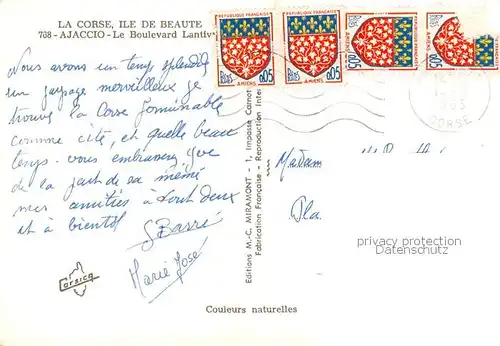 LA CORSE, ILE DE BEAUTE
788 - AJACCIO - Le Boulevard Lantiv
REPUBLIQUE FRANÇAISE
POSTES
0,05
AMIENS
REPUBLIQUE FRANÇAISE
POSTES
0,05
AMIENS
REPUBLIQUE FRANÇAISE
POSTES
0,05
AMIENS
0,05
AMIENS
CORSE
Nous avons un temps splendide
un paysage merveilleux je
trouve la Corse formidable
comme cité, et quelle beau
temps. vous embrassez Yve
de la part de sa mémé
mes amitiés à tout deux
et à bientôt
S Barré
Marie José
Editions M.-C. MIRAMONT - 1, Impasse Carnot
Fabrication Française - Reproduction Inter
Madam
Pla.
privacy protection
Datenschutz
Corsica
Couleurs naturelles